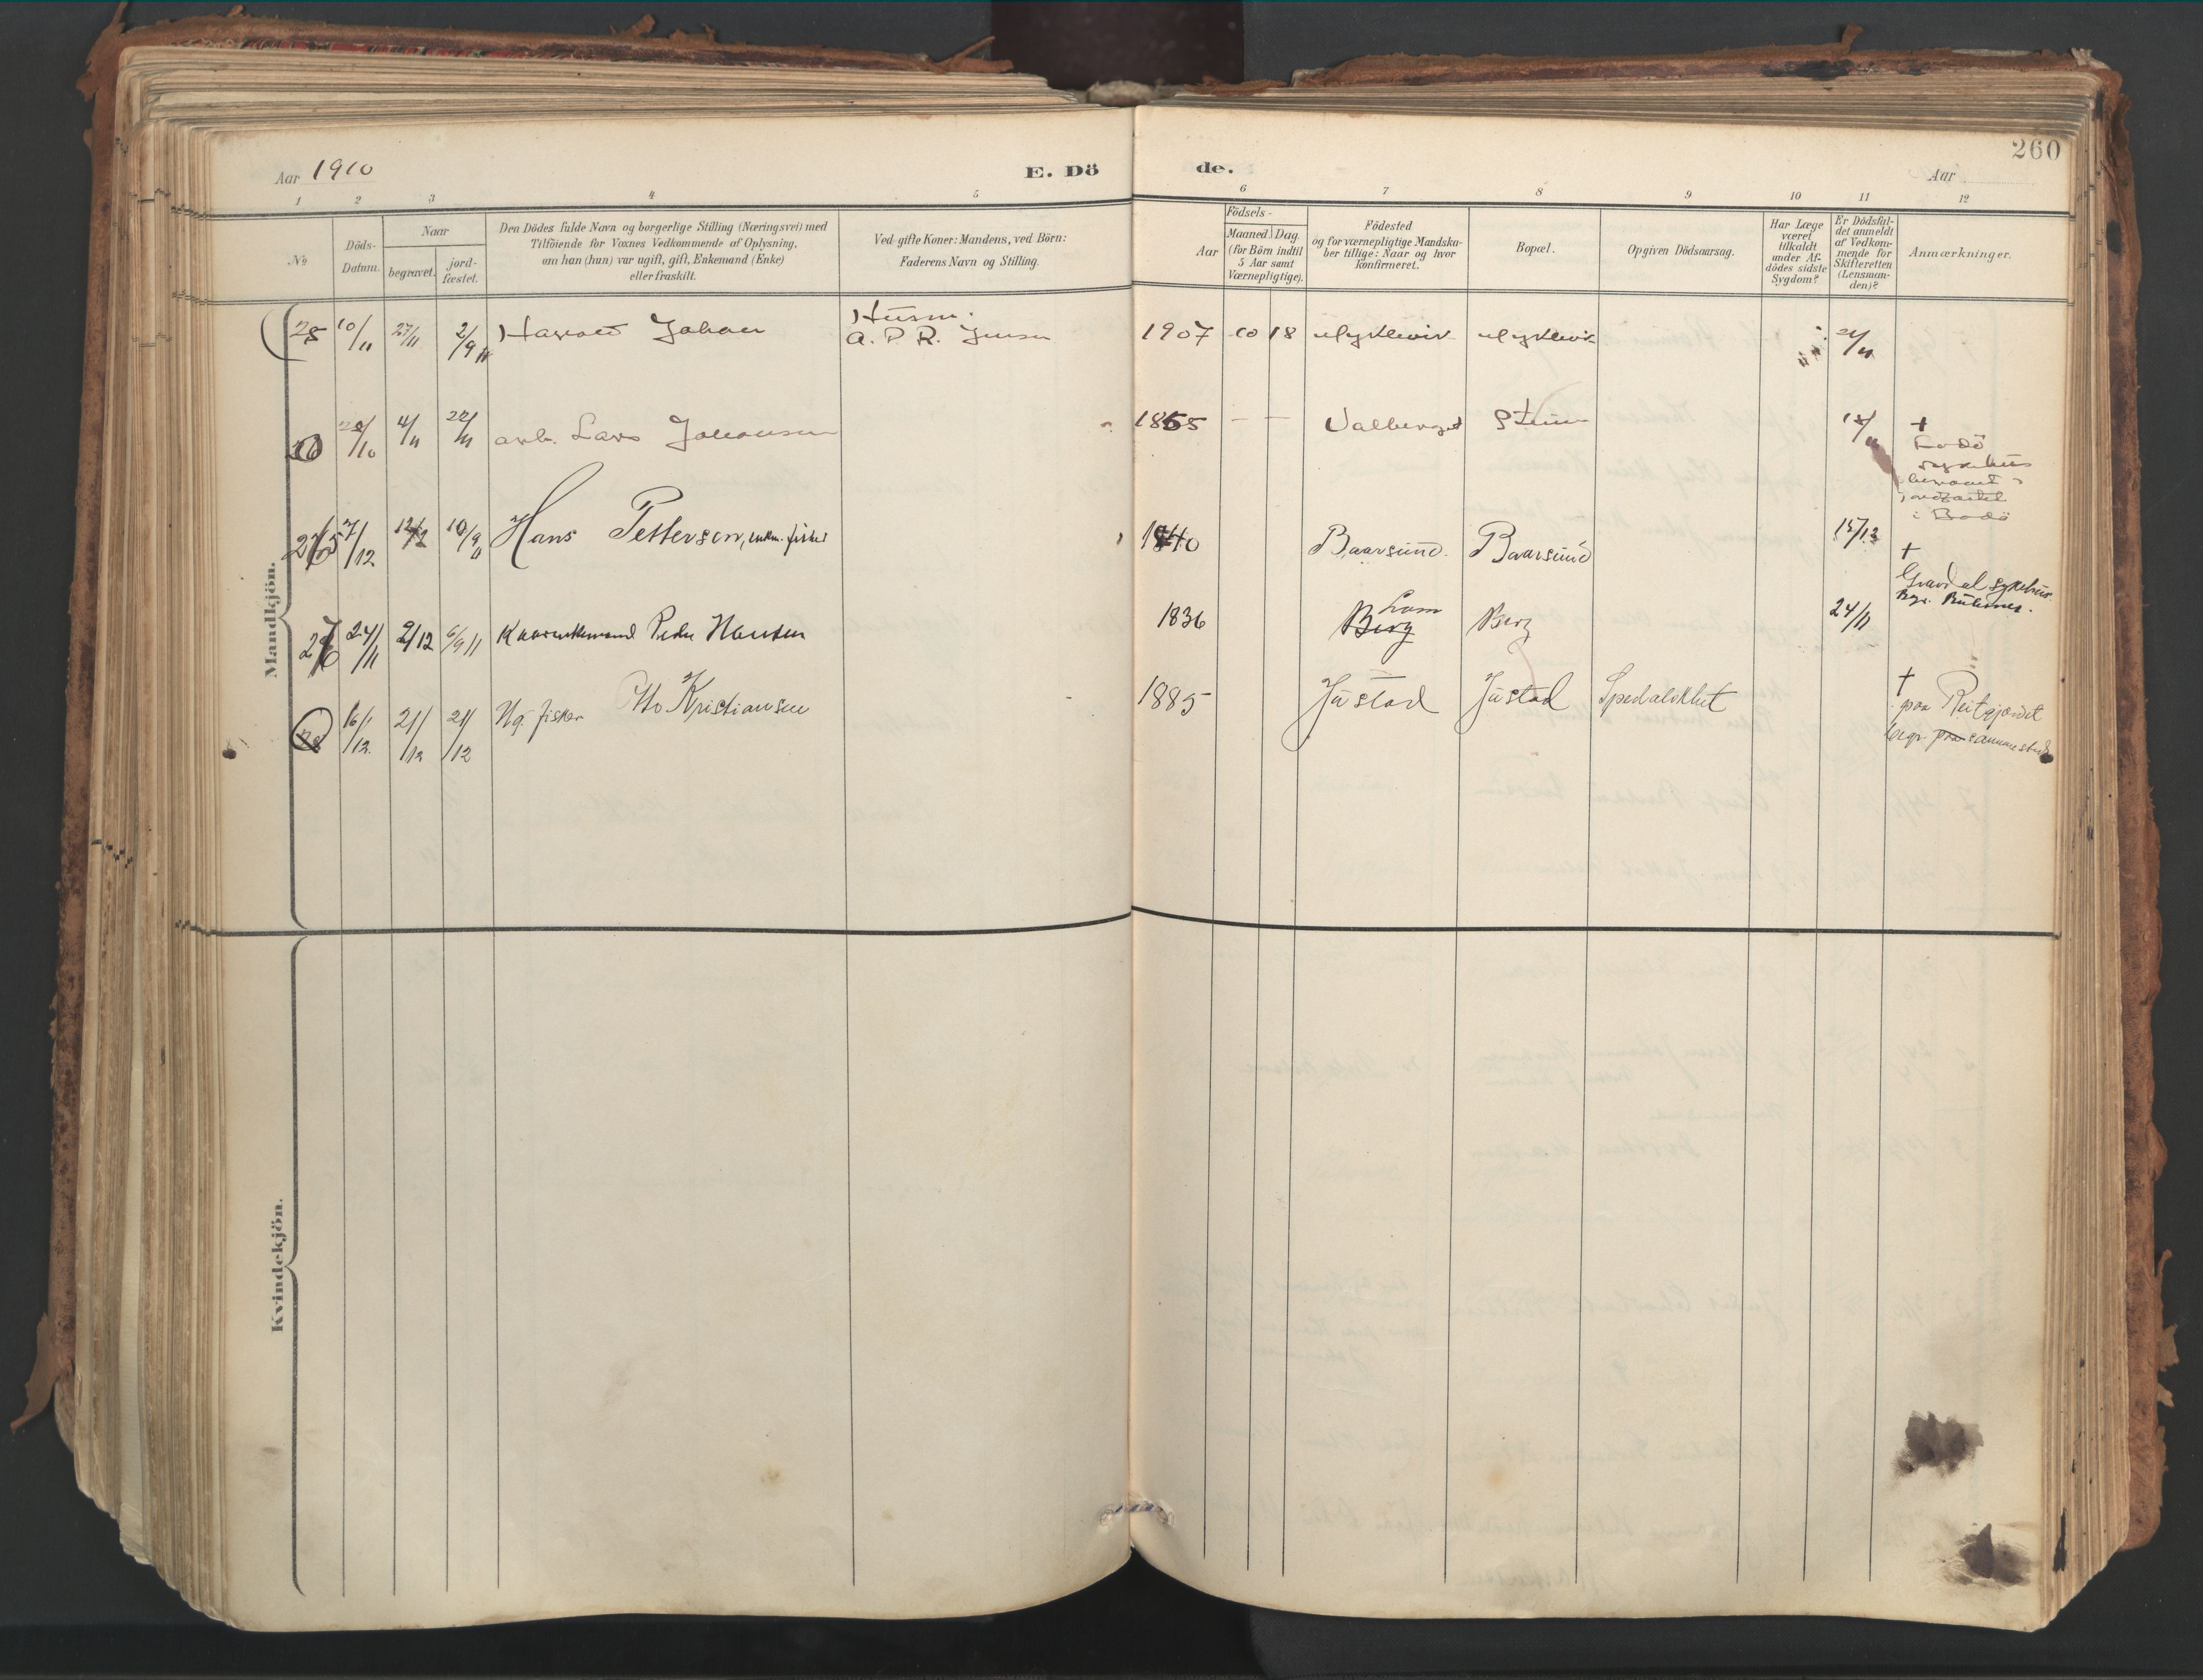 Aar 1910
E. Dö
de.
260
Aar
1 2 3 4 5 6 7 8 9 10 11 12
No
Döds-
Datum.
Naar
begravet.
jord-
fæstet.
Den Dödes fulde Navn og borgerlige Stilling (Næringsvei) med
Tilföiende for Voxnes Vedkommende af Oplysning,
om han (hun) var ugift, gift, Enkemand (Enke)
eller fraskilt.
Ved gifte Koner: Mandens, ved Börn:
Faderens Navn og Stilling.
Födsels-
Aar
Maaned. Dag.
(for Börn indtil
5 Aar samt
Værnepligtige).
Födested
og for værnepligtige Mandska-
ber tillige: Naar og hvor
konfirmeret.
Bopæl.
Opgiven Dödsaarsag.
Har Læge
været
tilkaldt
under Af-
dödes sidste
Sygdom?
Er Dödsfal-
det anmeldt
af Vedkom-
mende for
Skifteretten
(Lensman-
den)?
Anmærkninger.
Mandkjön.
10/11 27/11 2/9 11 Harald Johan Husm. A. P. R. Jensen 1907 10 18
28/10 4/11 22/11 arb. Lars Johansen 1865 - - Valberget Stein 18/11 † Bodö sykehus begravet i jordfæstet i Bodö
7/12 10/9 11 Hans Pettersen, enkm. fisker 1840 Baarsund. Baarsund 15/12 † Gravdal sykehus.
24/11 2/12 6/9 11 Kaarenkemand Peder Hansen 1836 Berg Berg 24/11
16/12 21/12 21/12 Ug. fisker Otto Kristiansen 1885 Justad Justad Spedalskhet † paa Reitgjerdet begr. paa samme sted
Kvindekjön.